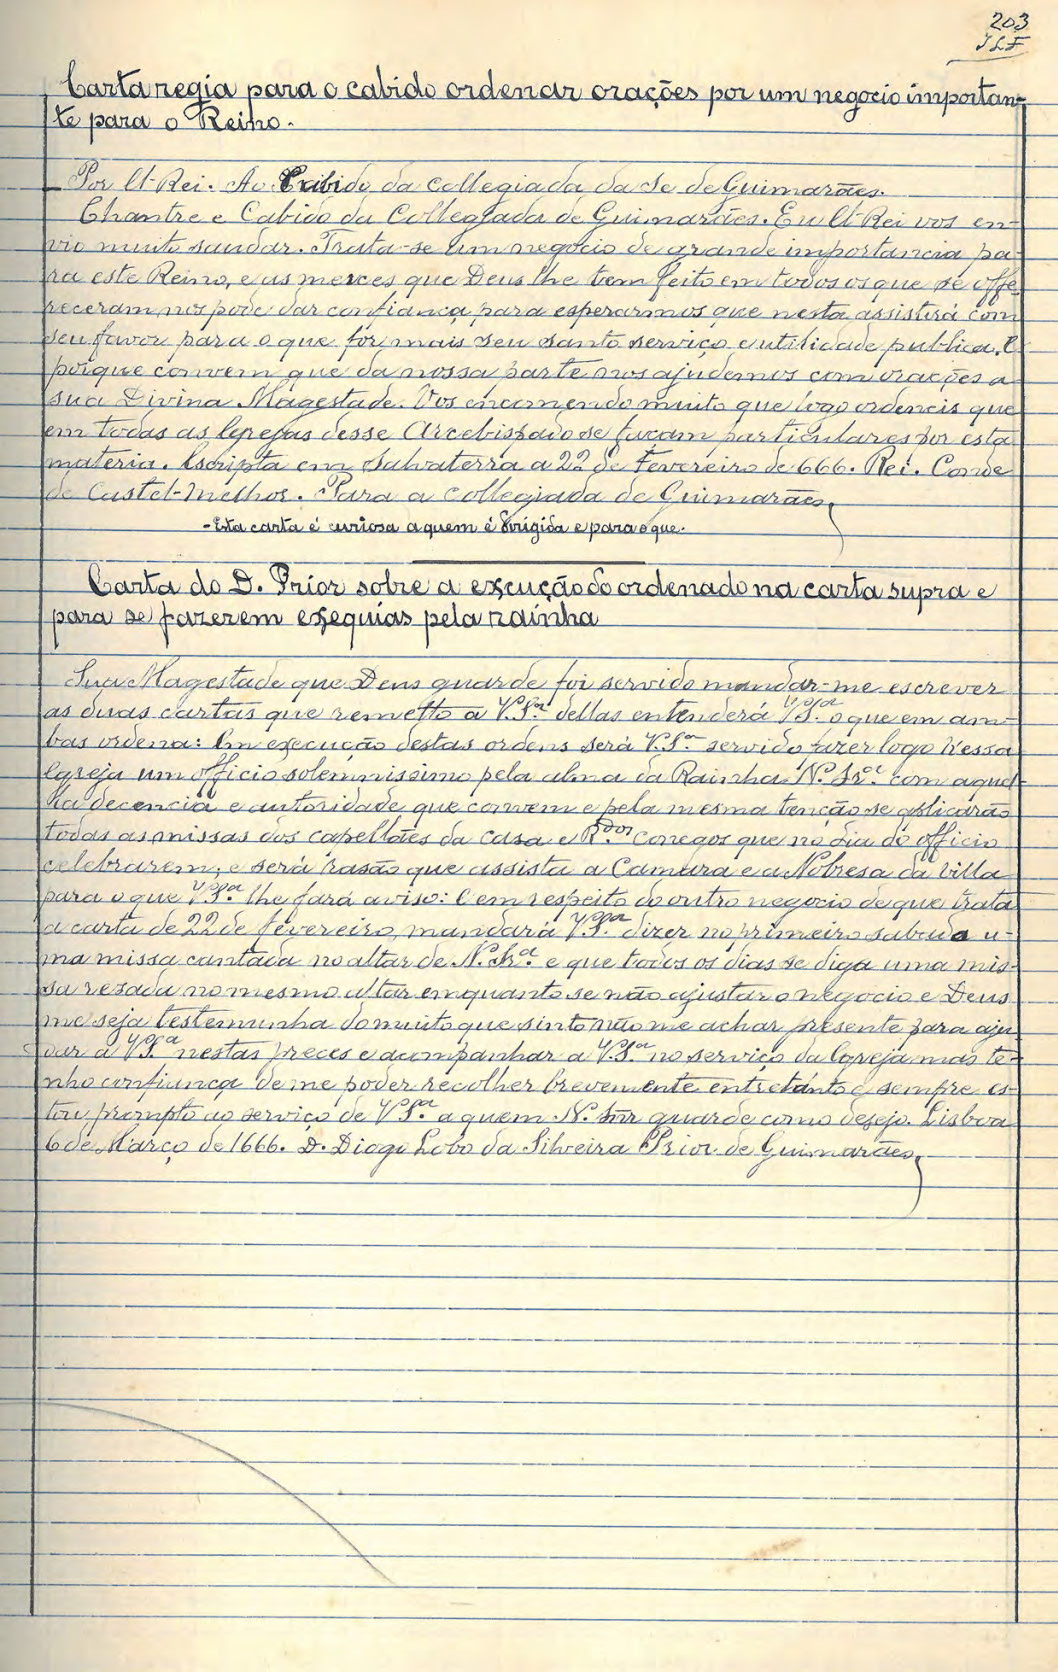 203
JLF
Carta regia para o cabido ordenar orações por um negocio importan-
te para o Reino.
Por El-Rei. Ao Cabido da Collegiada da Se de Guimarães.
Chantre e Cabido da Collegiada de Guimarães. Eu El-Rei vos en-
vio muito saudar. Trata-se um negocio de grande importancia pa-
ra este Reino, e as merces que Deus lhe tem feito em todos os que se offe-
receram, nos pode dar confiança para esperarmos que nesta assistirá com
seu favor para o que for mais seu santo serviço e utilidade publica. E
porque convem que da nossa parte nos ajudemos com orações a
sua Divina Magestade. Vos encomendo muito que logo ordeneis que
em todas as Igrejas desse Arcebispado se façam particulares por esta
materia. Escripta em Salvaterra a 22 de Fevereiro de 666. Rei. Conde
de Castel-Melhor. Para a Collegiada de Guimarães,
-Esta carta é curiosa a quem é dirigida e para o que.
Carta do D. Prior sobre a execução do ordenado na carta supra e
para se fazerem exequias pela rainha
Sua Magestade que Deus guarde foi servido mandar-me escrever
as duas cartas que remetto a V.S.ª dellas entenderá V.S.ª o que em am-
bas ordena: Em execução destas ordens será V.S.ª servido fazer logo nessa
Igreja um officio solemnissimo pela alma da Rainha N. Sr.ª com aquel-
la decencia e autoridade que convem e pela mesma tenção se aplicarão
todas as missas dos capellães da casa e R.dos conegos que no dia do officio
celebrarem; e será rasão que assista a Camara e a Nobresa da villa
para o que V.S.ª lhe fará aviso: E em respeito do outro negocio de que trata
a carta de 22 de fevereiro, mandará V.S.ª dizer no primeiro sabado u-
ma missa cantada no altar de N. Sr.ª e que todos os dias se diga uma mis-
sa resada no mesmo altar emquanto se não ajustar o negocio e Deus
me seja testemunha do muito que sinto não me achar presente para aju-
dar a V.S.ª nestas preces e acompanhar a V.S.ª no serviço da Igreja mas te-
nho confiança de me poder recolher brevemente entretanto e sempre es-
tou prompto ao serviço de V.S.ª a quem N. Snr guarde como desejo. Lisboa
6 de Março de 1666. D. Diogo Lobo da Silveira Prior de Guimarães,